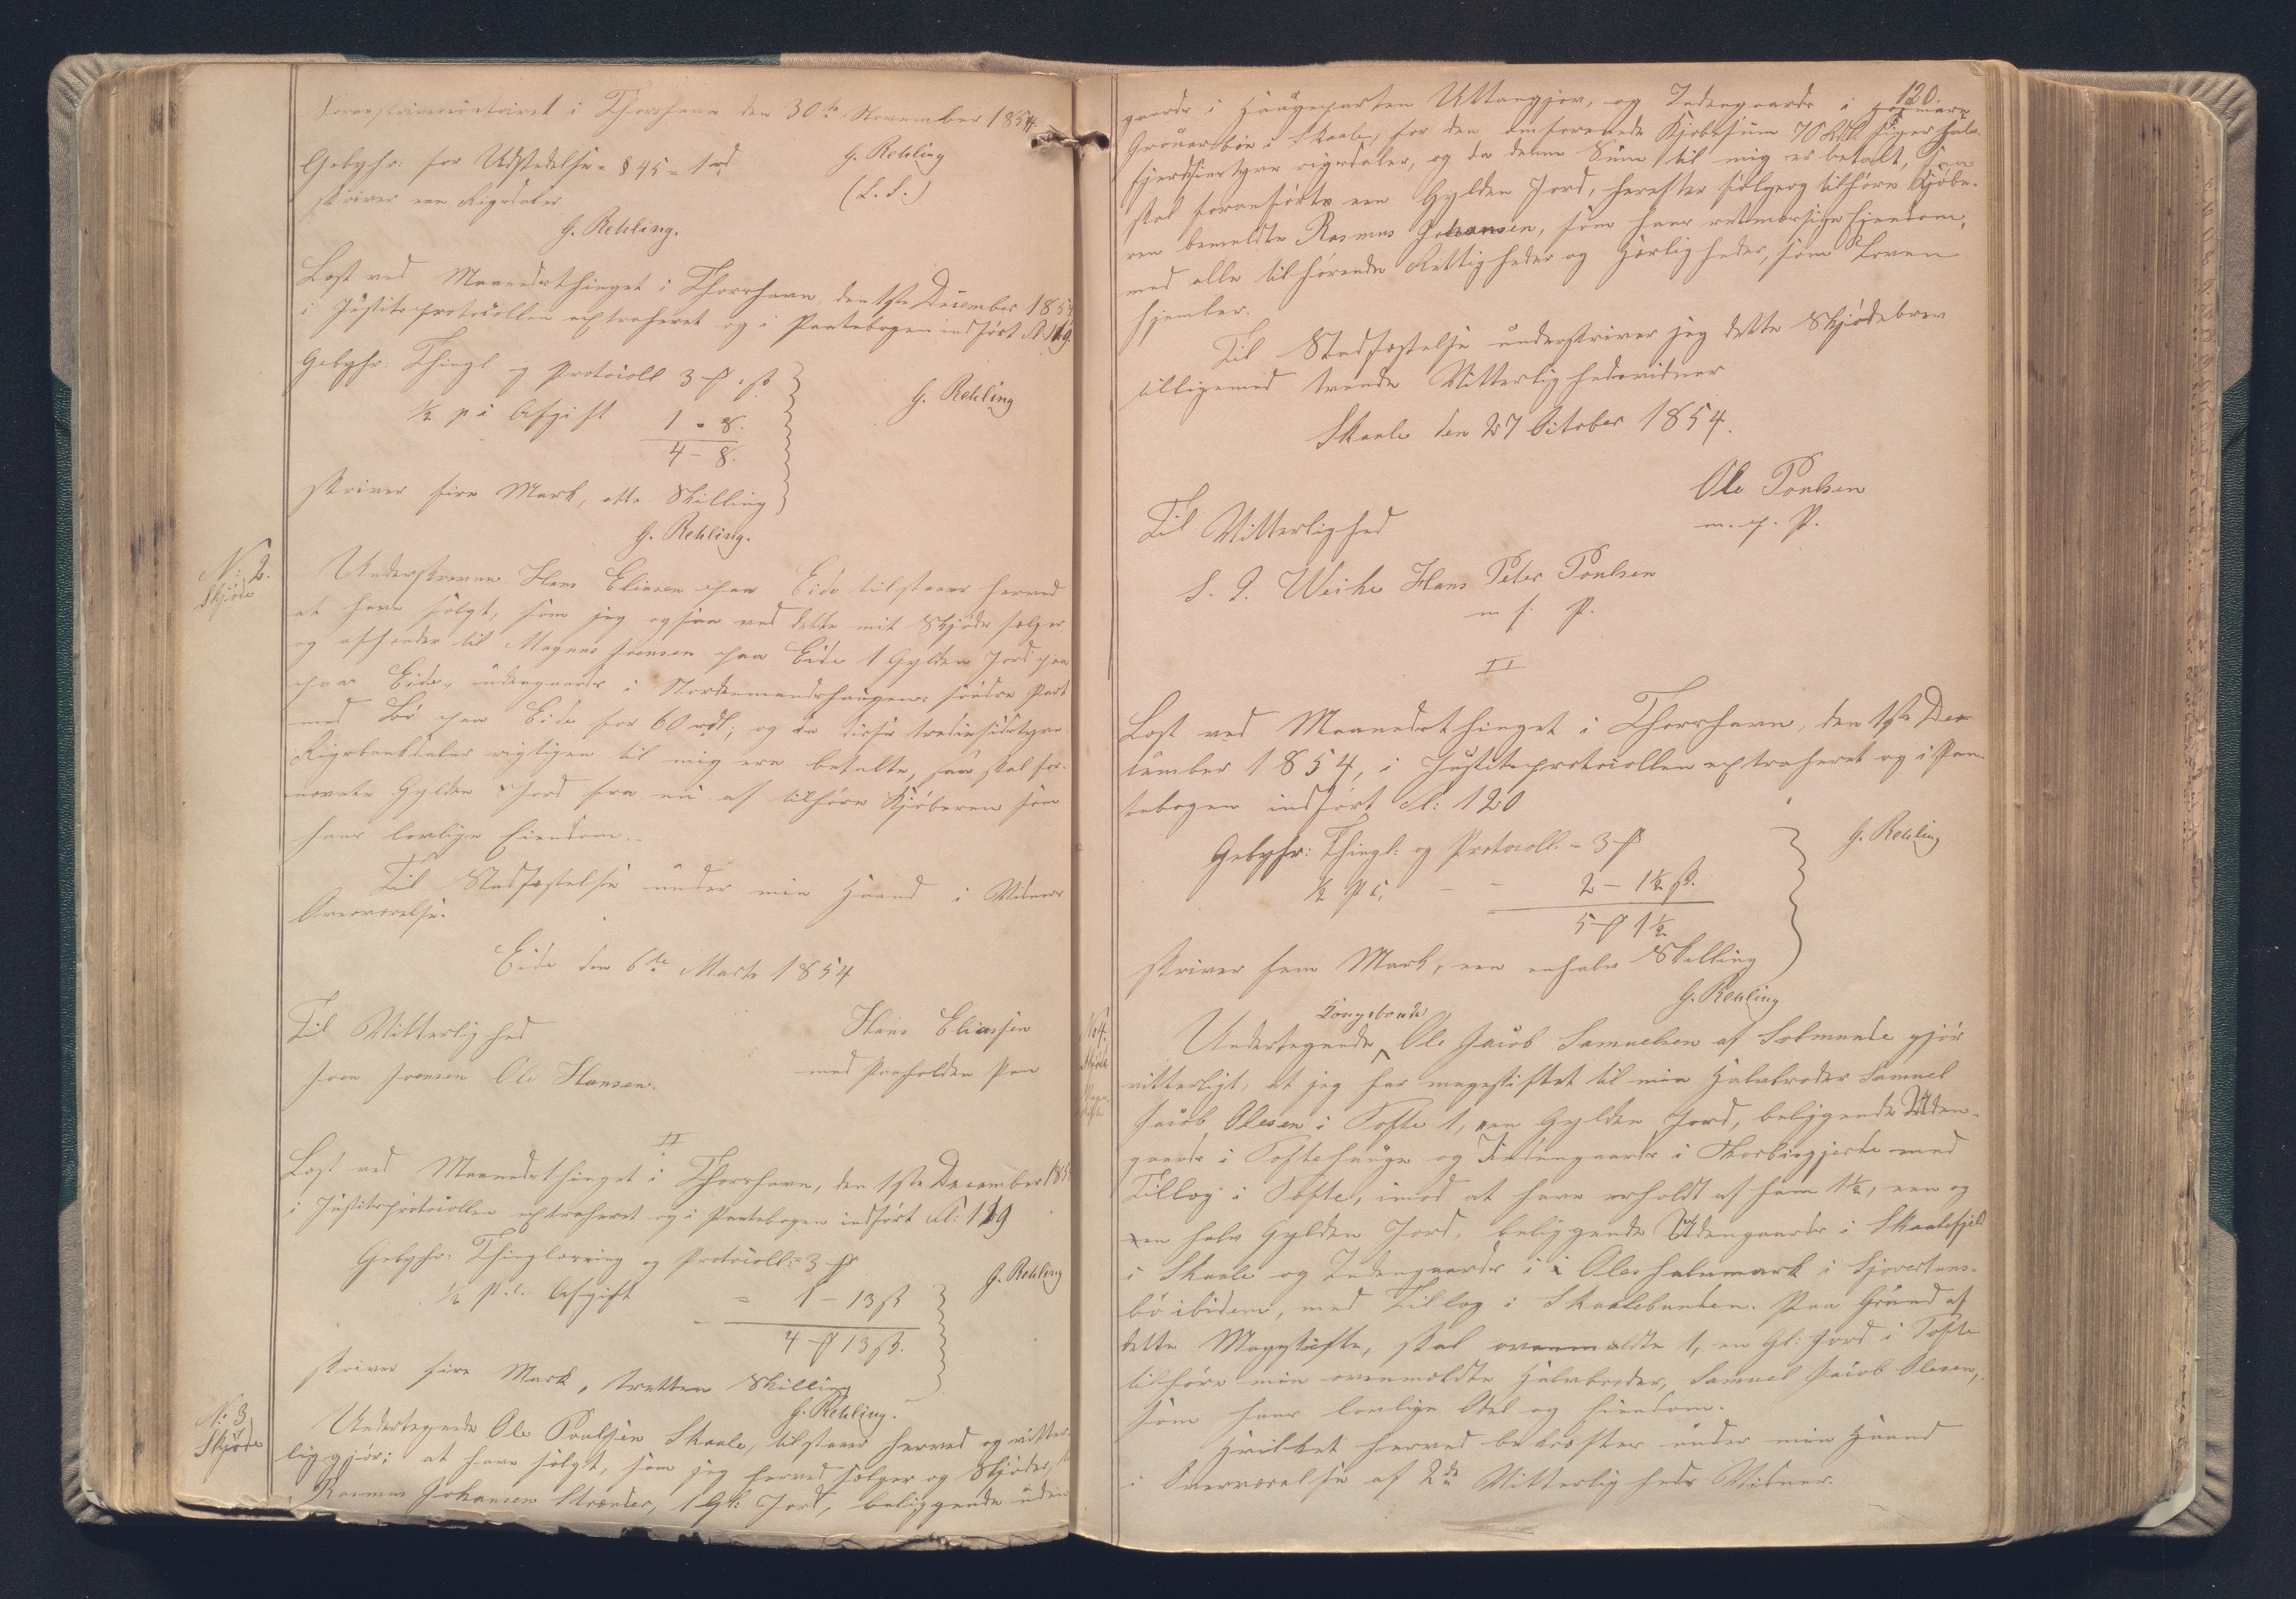 Sorenskriverietoiret i Thorshavn den 30te November 1854
Gebyhr: for Udstedelse = § 45 = 1 rd
skriver een Rigsdaler
G. Rehling
(L. S.)
G. Rehling.
Læst ved Maanedsthinget i Thorshavn, den 1ste December 1854
i Justitsprotocollen extraheret og i Pantebogen indført Fl: 119.
Gebyhr: Thingl og Protocoll 3 # " ß
½ p c Afgift 1 " 8.
4 - 8.
G. Rehling
skriver fire Mark, otte Skilling
G. Rehling.
N: 2.
Skjøde
Underskrevne Hans Eliasen paa Eide tilstaaer herved
at have solgt, som jeg ogsaa ved dette mit Skjøde sælger
og afhænder til Magnus Joensen paa Eide 1 Gylden Jord
paa Eide, udengaards i Nordenmandshaugens søndre Part
med Bø paa Eide for 60 rdl; og da disse tredsindstyve
Rigsbankdaler rigtigen til mig ere betalte, saa skal for-
nævnte Gylden Jord fra nu af tilhøre Kjøberen som
hans lovlige Eiendom.
Til Stadfæstelse under min Haand i Vidners
Overværelse.
Eide den 6te Marts 1854
Til Vitterlighed
Hans Eliassen
Joen Joensen Ole Hansen.
med Paaholden Pen
II
Læst ved Maanedsthinget i Thorshavn, den 1ste December 1854
i Justitsprotocollen extraheret og i Pantebogen indført Fl: 119
Gebyhr: Thinglæsning og Protocoll: = 3 #
½ p. c. Afgift = 1 - 13 ß
4 # 13 ß.
G. Rehling
skriver fire Mark, tretten Skilling
G. Rehling.
N: 3
Skjøde
Undertegnede Ole Poulsen Skaale, tilstaaer herved og vitter-
liggjør; at have solgt, som jeg herved sælger og Skjøder, til
Rasmus Johansen Strænder, 1 Gl: Jord, beliggende uden
120.
gaards i Haugeparten Uttangjov, og Indengaards i
Grouarbøe i Skaale, for den omforenede Kjøbesum 70 Rdl. siger halv-
fjerdsindstyve rigsdaler, og da denne Sum til mig er betalt, saa
skal foranførte een Gylden Jord, herefter følge og tilhøre Kjøbe-
ren bemeldte Rasmus Johansen, som hans retmæssige Eiendom,
med alle tilhørende Rettigheder og Herligheder, som Loven
hjemler.
Til Stadfæstelse underskriver jeg dette Skjødebrev
tilligemed tvende Vitterlighedsvidner
Skaale den 27 October 1854.
Ole Poulsen
m. f. P.
Til Vitterlighed
S. J. Weihe Hans Peter Poulsen
m f. P.
II
Læst ved Maanedsthinget i Thorshavn, den 1ste De-
cember 1854, i Justitsprotocollen extraheret og i Pan-
tebogen indført Fl: 120
Gebyhr: Thingl: og Protocoll. = 3 #
½ p c, - - 2 - 1½ ß.
5 # 1½
G. Rehling
skriver fem Mark, een enhalv Skilling
G. Rehling
N: 4.
Skjøde
Kongsbonde
Undertegnede Ole Jacob Samuelsen af Solmunde gjør
vitterligt, at jeg har mageskiftet til min Halvbroder Samuel
Jacob Olesen i Tofte 1, een Gylden Jord, beliggende Uden-
gaards i Toftehauge og Indengaards i Thorbisgjerde med
Tillæg i Tofte, imod at have erholdt af ham 1½, een og
een halv Gylden Jord, beliggende Udengaards i Skaalefjeld
i Skaale og Indengaards i Oleshalvmark i Sjovertuns-
bø ibidem, med Tillæg i Skaalebunden. Paa Grund af
dette Mageskifte, skal ovenmeldte 1, en Gl: Jord i Tofte
tilhøre min ovenmeldte Halvbroder, Samuel Jacob Olesen,
som hans lovlige Odel og Eiendom.
Hvilket herved bekræftes under min Haand
i Overværelse af 2de Vitterligheds Vidner.